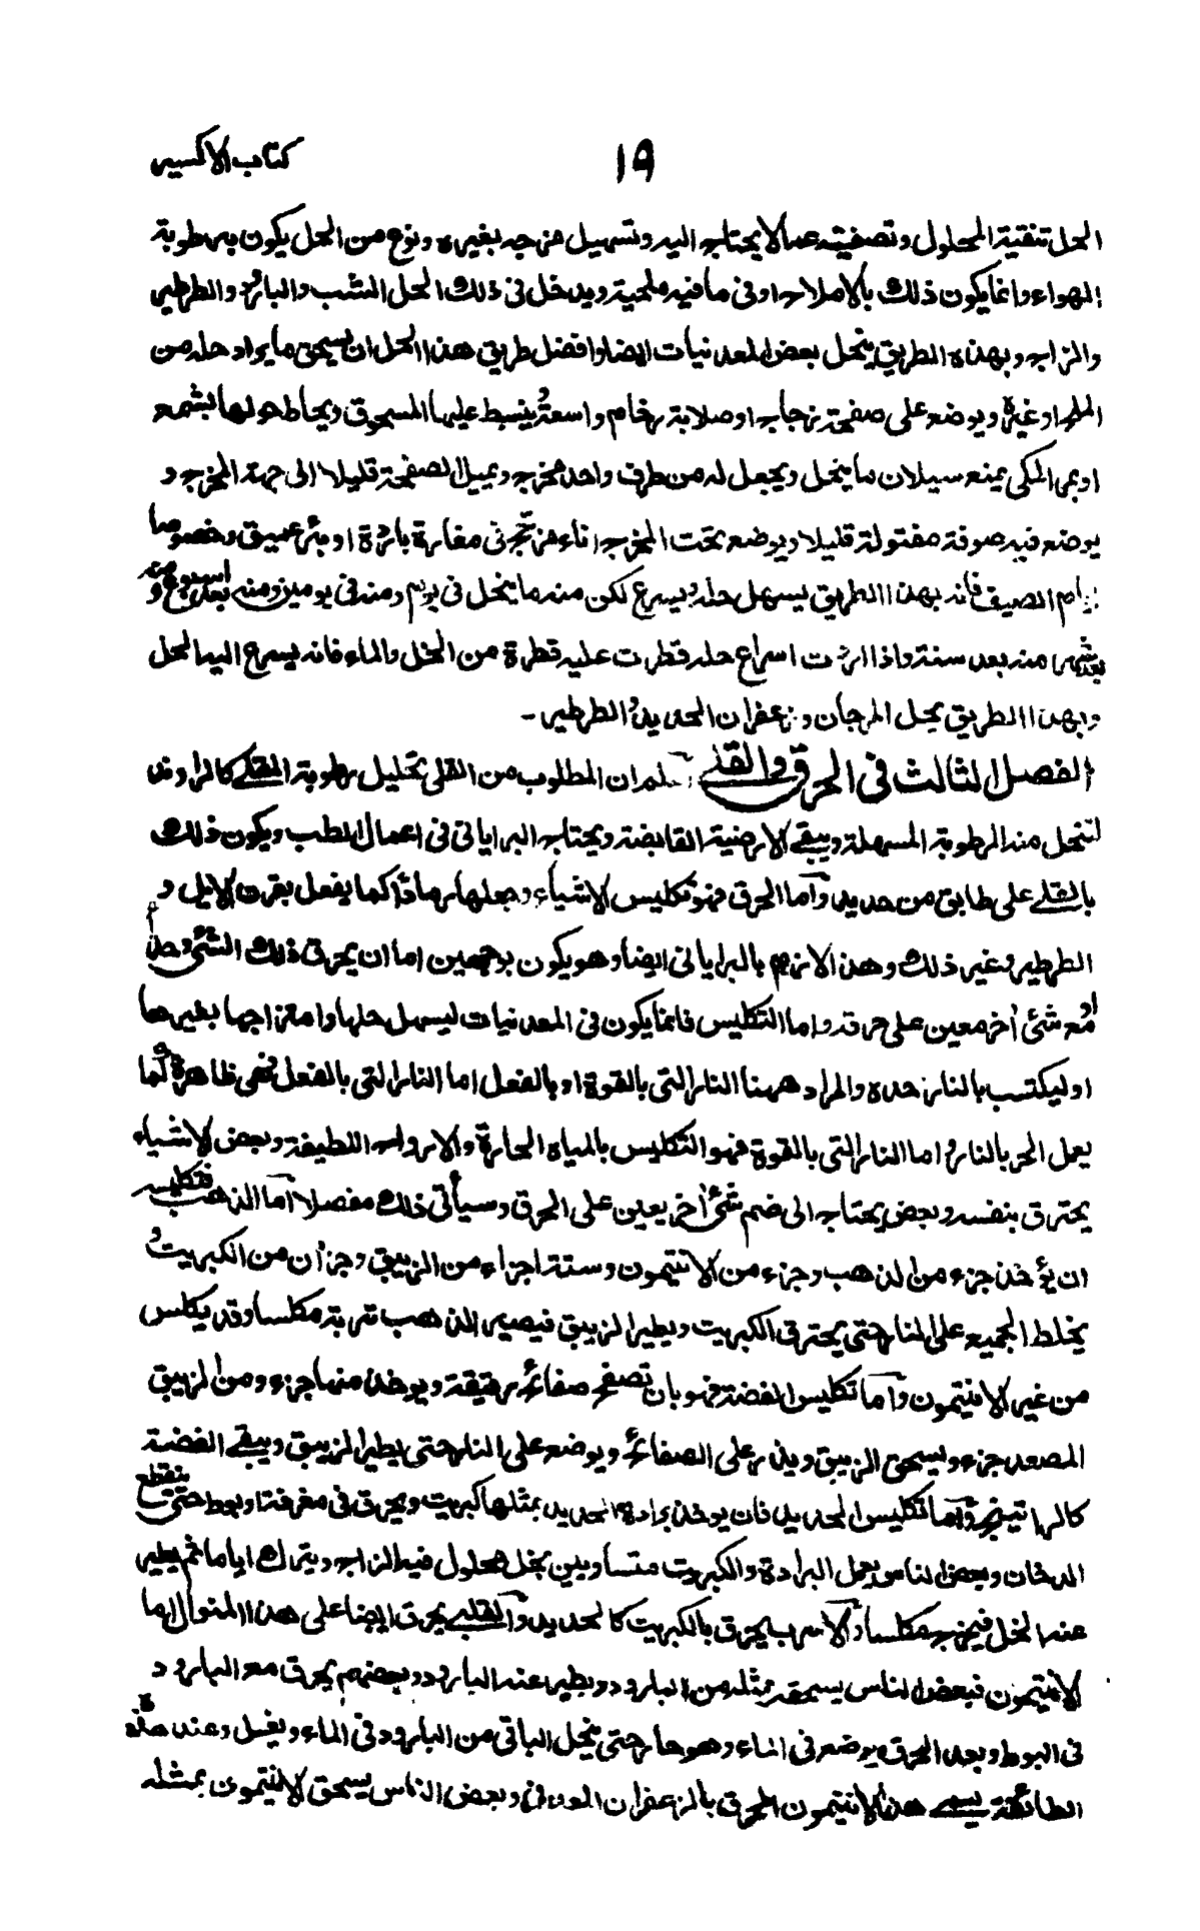 كتاب الاكسير ١٩
الحل تنقية المحلول وتصفيته عما لا يحتاج اليه وتسهيل مزجه بغيره ونوع من الحل يكون برطوبة
الهواء وانما يكون ذلك بالاملاح او فى ما فيه ملحية ويدخل فى ذلك الحل الشب والبارود والطرطير
والزاج وبهذه الطريق ينحل بعض المعدنيات ايضا وافضل طريق هذا الحل ان يسحق ما يراد حله من
الملح او غيره ويوضع على صفحة زجاج او صلابة رخام واسعة وينبسط عليها المسحوق ويحاط حولها بشمع
او بمر المكى يمنع سيلان ما ينحل ويجعل له من طرف واحد مخرج ويميل الصفحة قليلا الى جهة المخرج و
يوضع فيه صوفة مفتولة قليلا ويوضع تحت المخرج اناء مزجج فى مغارة باردة او بئر عميق وخصوصا
ايام الصيف فانه بهذا الطريق يسهل حله ويسرع لكن منه ما ينحل فى يوم ومنه فى يومين ومنه بعد اسبوع ومنه
بعد شهر ومنه بعد سنة واذا اردت اسراع حله قطرت عليه قطرة من الخل والماء فانه يسرع اليه الحل
وبهذا الطريق يحل المرجان وزعفران الحديد والطرطير۔
الفصل الثالث فى الحرق والقلى اعلم ان المطلوب من القلى تحليل رطوبة المقلى كالراوند
لتنحل منه الرطوبة المسهلة ويبقى الارضية القابضة ويحتاج البرايانى فى اعمال الطب ويكون ذلك
بالقلى على طابق من حديد واما الحرق فهو تكليس الاشياء وجعلها رمادا كما يفعل بقرن الايل و
الطرطير وغير ذلك وهذا لازم بالبرايانى ايضا وهو يكون بوجهين اما ان يحرق ذلك الشئ وحده
او مع شئ اخر معين على حرقه واما التكليس فانما يكون فى المعدنيات ليسهل حلها وامتزاجها بغيرها
او ليكتسب بالنار حده والمراد ههنا النار التى بالقوة او بالفعل اما النار التى بالفعل فهى ظاهرة كما
يعمل الحر بالنار واما النار التى بالقوة فهو التكليس بالمياه الحارة والارواح اللطيفة وبعض الاشياء
يحترق بنفسه وبعض يحتاج الى ضم شئ اخر يعين على الحرق وسيأتى ذلك مفصلا اما الذهب فتكليسه
ان يؤخذ جزء من الذهب وجزء من الانتيمون وستة اجزاء من الزيبق وجزأن من الكبريت و
يخلط الجميع على النار حتى يحترق الكبريت ويطير الزيبق فيصير الذهب تربة مكلسا وقد يكلس
من غير الانتيمون واما تكليس الفضة فهو بان تصفح صفائح رقيقة ويوخذ منها جزء ومن الزيبق
المصعد جزء ويسحق الزيبق ويذر على الصفائح ويوضع على النار حتى يطير الزيبق ويبقى الفضة
كالراتينج واما تكليس الحديد فان يوخذ برادة الحديد بمثلها كبريت ويحرق فى مغرفة او بوط حتى ينقطع
الدخان وبعض الناس يعمل البرادة والكبريت متساويين بخل محلول فيه الزاج ويترك اياما ثم يطير
عنه الخل فيخرج مكلسا والاسرب يحرق بالكبريت كالحديد والقلعى يحرق ايضا على هذا المنوال اما
الانتيمون فبعض الناس يسحقه بمثله من البارود ويطير عنه البارود وبعضهم يحرق مع البارود
فى البوط وبعد الحرق يوضع فى الماء وهو حار حتى ينحل الباقى من البارود فى الماء ويغسل وعند هذه
الطائفة يسمى هذا الانتيمون المحرق بالزعفران المعدنى وبعض الناس يسحق الانتيمون بمثله